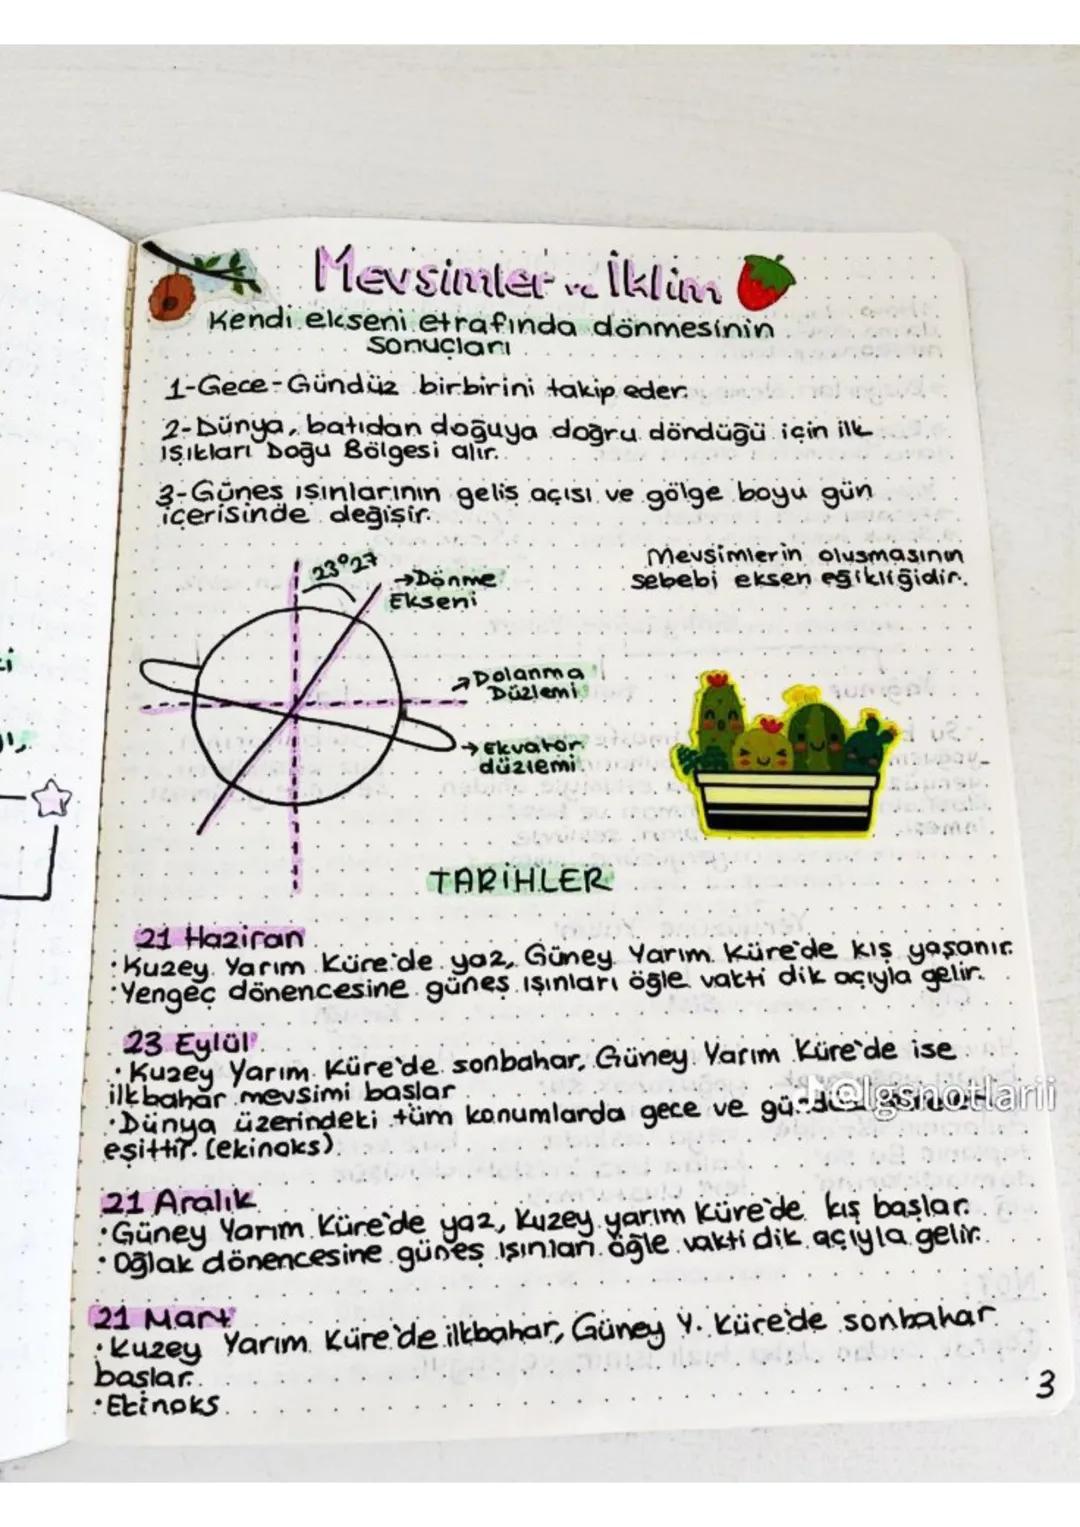 Mevsimler ve İklim
Kendi ekseni etrafında dönmesinin
sonuçları
1-Gece-Gündüz birbirini takip eder.
2-Dünya, batıdan doğuya doğru döndüğü için ilk
ışıkları Doğu Bölgesi alır.
3-Güneş ışınlarının geliş açısı ve gölge boyu gün
içerisinde değişir.
Mevsimlerin oluşmasının
sebebi eksen eğikliğidir.
23°27
→Dönme
Ekseni
→Dolanma
Düzlemi
→Ekvator
düzlemi
TARİHLER
21 Haziran
•Kuzey Yarım Küre'de yaz, Güney Yarım Küre'de kış yaşanır.
•Yengeç dönencesine güneş ışınları öğle vakti dik açıyla gelir.
23 Eylül
•Kuzey Yarım Küre'de sonbahar, Güney Yarım Küre'de ise
ilkbahar mevsimi başlar
•Dünya üzerindeki tüm konumlarda gece ve
@lgsnotlarii
eşittir. (ekinoks)
21 Aralık
•Güney Yarım Küre'de yaz, Kuzey yarım küre'de kış başlar.
•Oğlak dönencesine güneş ışınları öğle vakti dik açıyla gelir.
21 Mart
•Kuzey Yarım Küre'de ilkbahar, Güney Y. Küre'de sonbahar
başlar.
•Ekinoks.
3